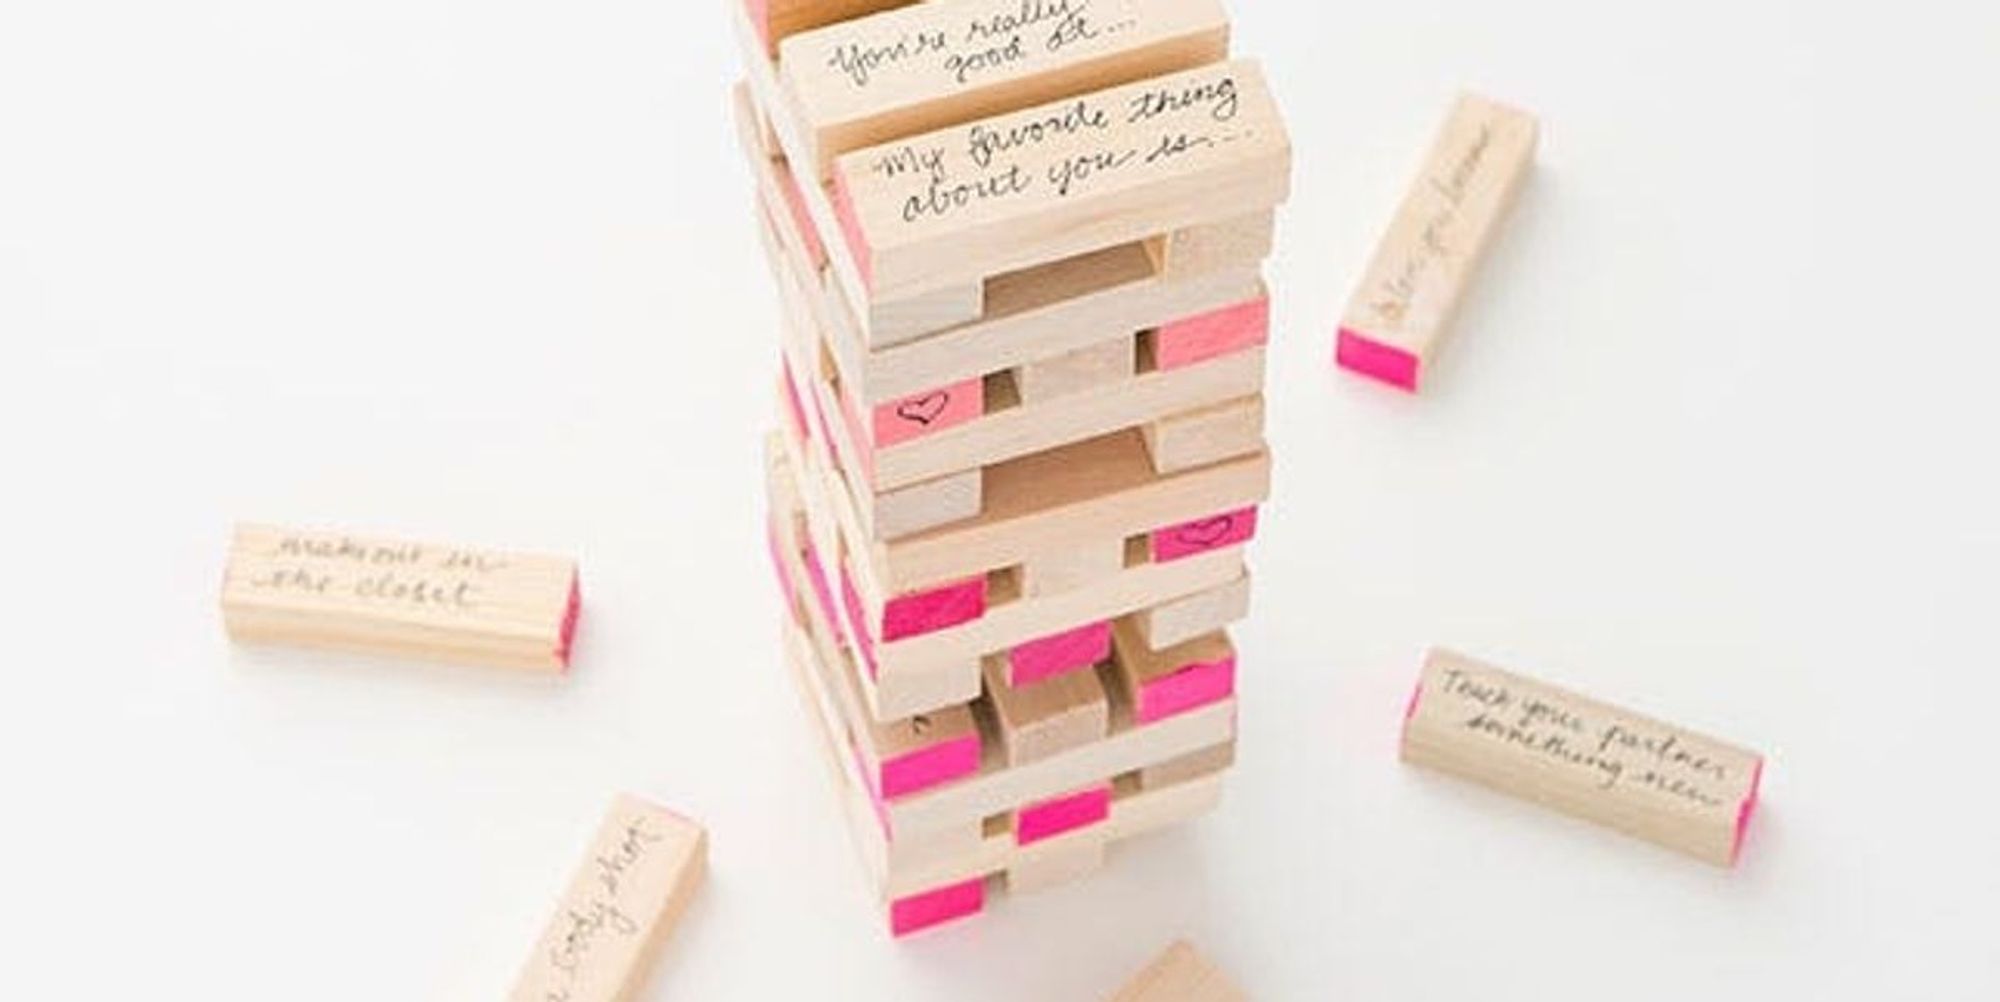 You're really
good at...
My favorite thing
about you is....
makeout in
the closet
Teach your partner
something new
body shot